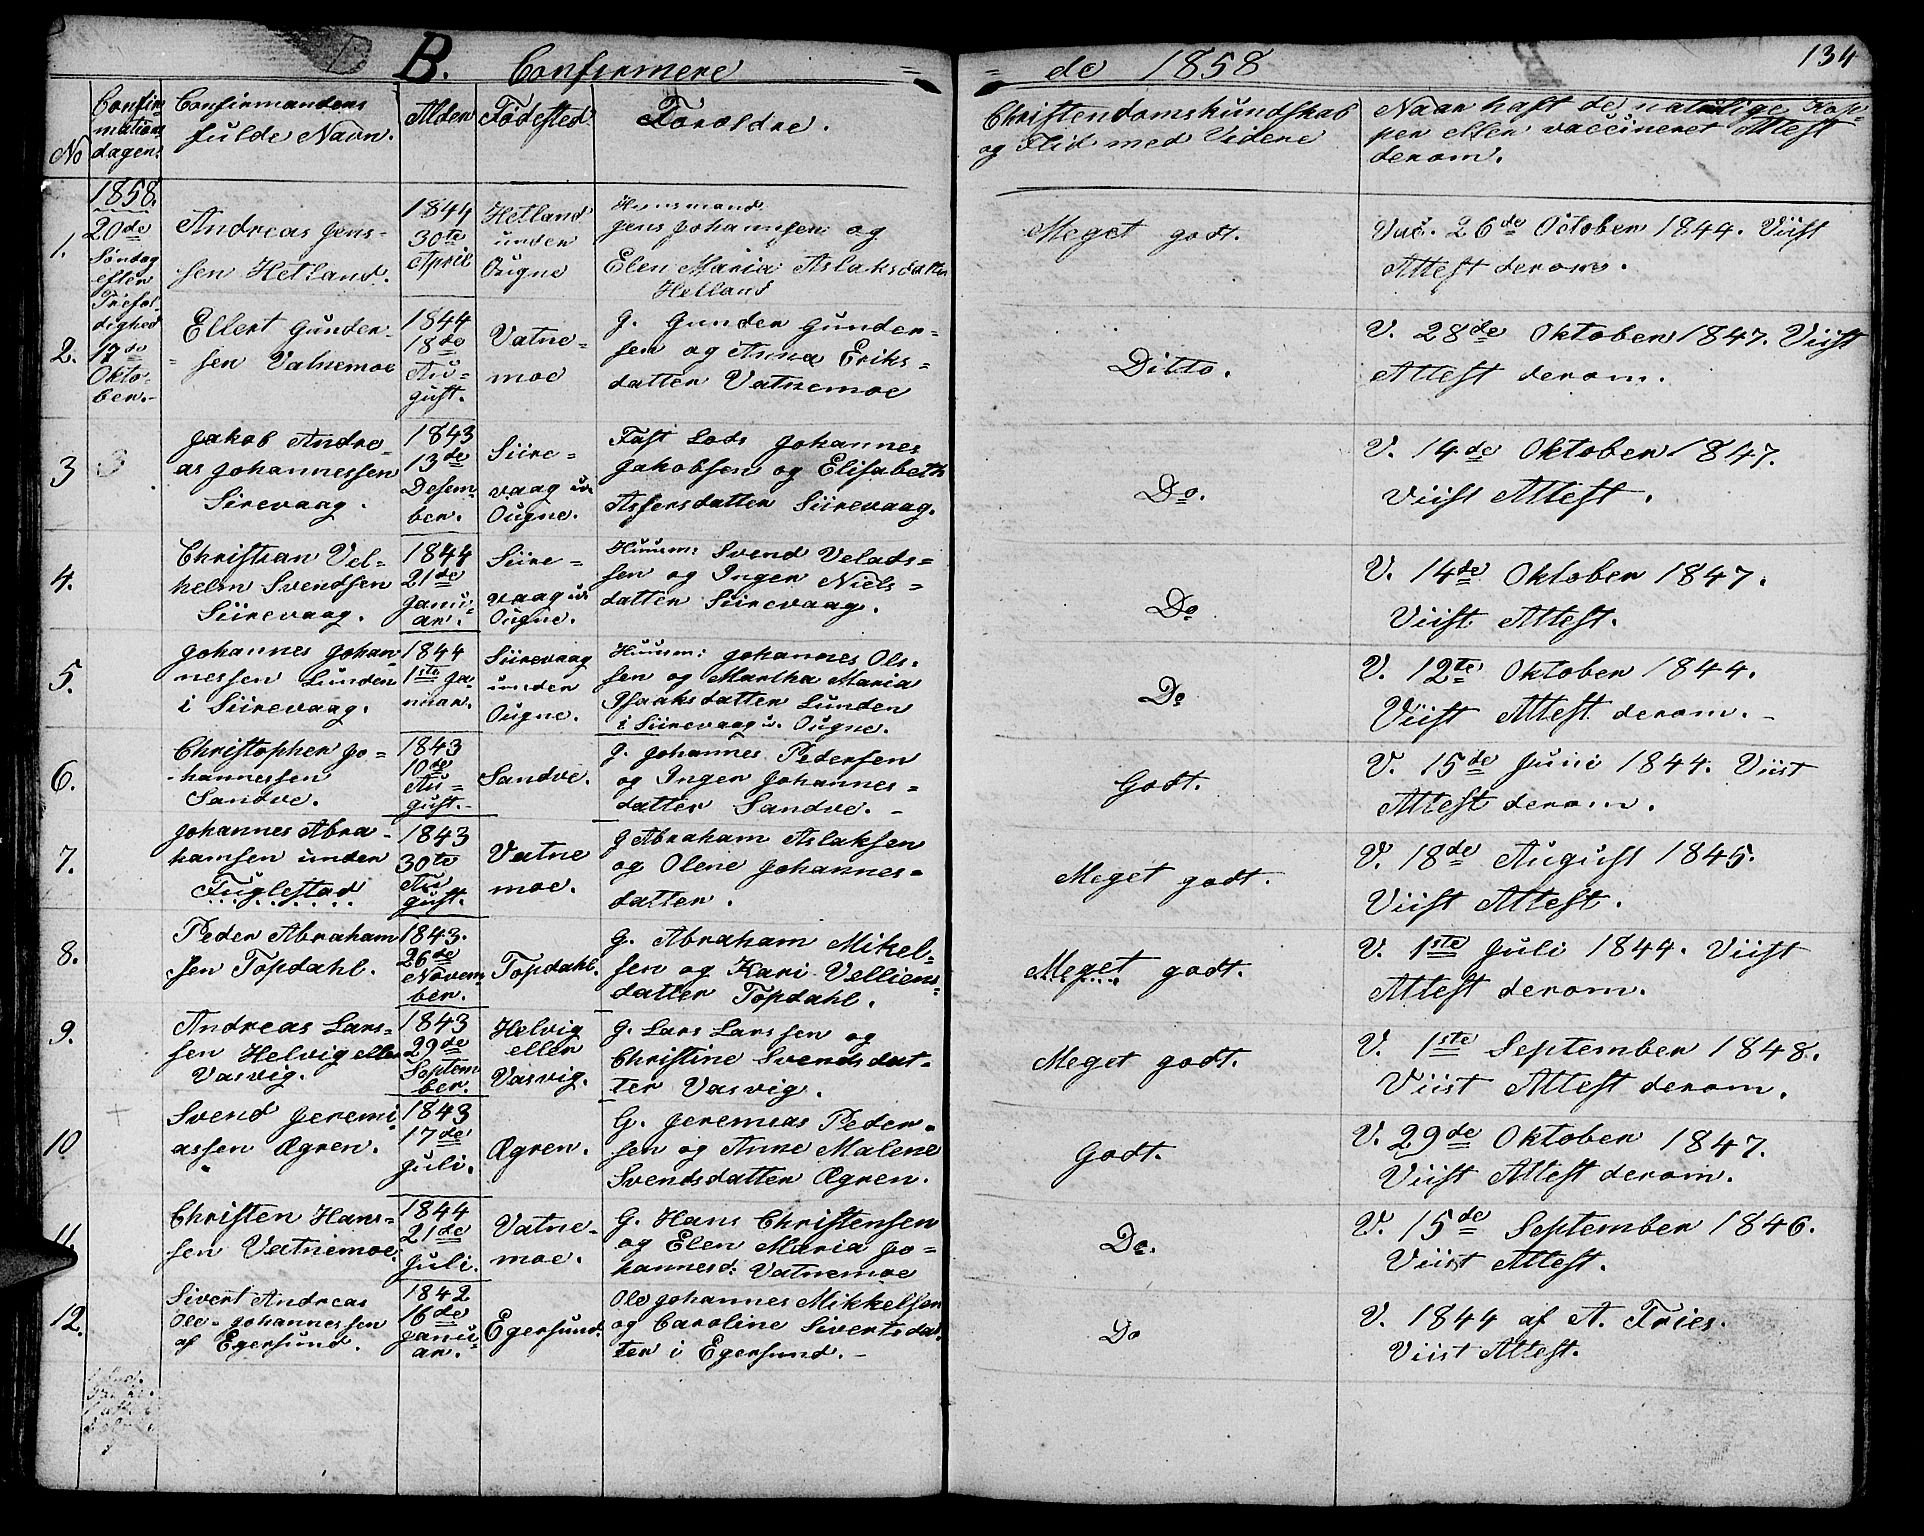 B. Confirmere = = de 1858 134
No
Confir
mations
dagen.
Confirmandens
fulde Navn.
Alder
Fødested.
Forældre.
Christendomskundskab
og Flid med Videre
Naar haft de naturlige Kop-
per eller vaccineret Attest
derom.
1858.
20de
Søndag
efter
Trefol
dighed
17de
Okto-
ber.-
1.
Andreas Jens-
sen Hetland.
1844
30te
April
Hetland
under
Ougne
Huusmand
Jens Johannsen og
Elen Maria Aslaksdatter
Hetland
Meget godt.
Vac. 26de October 1844. Viist
Attest derom.
2.
Ellert Gunder-
sen Vatnemoe
1844
18de
Au-
gust.
Vatne-
moe
G. Gunder Gunder-
sen og Anna Eriks-
datter Vatnemoe
Ditto.
V. 28de Oktober 1847. Viist
Attest derom.
3
Jakob Andre-
as Johannessen
Sirevaag.
1843
13de
Desem-
ber.
Siire-
vaag u.
Ougne.
Fast Lods Johannes
Jakobsen og Elisabeth
Assersdatter Siirevaag.
Do.
V. 14de Oktober 1847.
Viist Attest.
4.
Christian Vel-
helm Svendsen
Siirevaag.
1844
21de
Janu-
ar.
Siire-
vaag u.
Ougne.
Huusm: Svend Velads-
sen og Inger Niels-
datter Siirevaag.
Do
V. 14de Oktober 1847.
Viist Attest.
5.
Johannes Johan-
nessen Lunden
i Siirevaag.
1844
1ste Ja-
nuar.
Siirevaag
under
Ougne.
Huusm: Johannes Ols-
sen og Martha Maria
Isaaksdatter Lunden
i Siirevaag u. Ougne.
Do
V. 12te Oktober 1844.
Viist Attest derom.-
6.
Christopher Jo-
hannessen
Sandve.
1843
10de
Au-
gust.-
Sandve.
G. Johannes Pedersen
og Inger Johannes-
datter Sandve.-
Godt.
V. 15de Juni 1844. Viist
Attest derom.
7.
Johannes Abra-
hamsen under
Fuglestad
1843
30te
Au
gust.
Vatne
moe.
G Abraham Aslaksen
og Olene Johannes-
datter.
Meget godt.
V. 18de August 1845.
Viist Attest.
8.
Peder Abraham
sen Topdahl.
1843.
26de
Novem-
ber.
Topdahl.
G. Abraham Mikel-
sen og Kari Velliems-
datter Topdahl.
Meget godt.
V. 1ste Juli 1844. Viist
Attest derom.
9.
Andreas Lars-
sen Helvig eller
Vasvig.
1843
29de
Septem
ber.
Helvig
eller
Vasvig.
G. Lars Larssen og
Christine Svendsdat-
ter Vasvig.
Meget godt.
V. 1ste September 1848.
Viist Attest derom.
10
Svend Jeremi-
assen Ægren.
1843
17de
Juli.
Ægren.
G. Jeremias Peder-
sen og Anne Malene
Svendsdatter Ægren.
Godt.
V. 29de Oktober 1847.
Viist Attest derom.
11.
Christen Hans-
sen Vatnemoe.
1844
21de
Juli.
Vatne-
moe.
G. Hans Christensen
og Elen Maria Jo-
hannesd: Vatnemoe
Do.
V. 15de September 1846.
Viist Attest.
12.
Sivert Andreas
Ole-Johannessen
af Egersund.
1842
16de
Janu-
ar.
Egersund.
Ole Johannes Mikkelsen
og Caroline Sivertsdat
ter i Egersund.-
Do
V. 1844 af A. Fries.
Viist Attest.